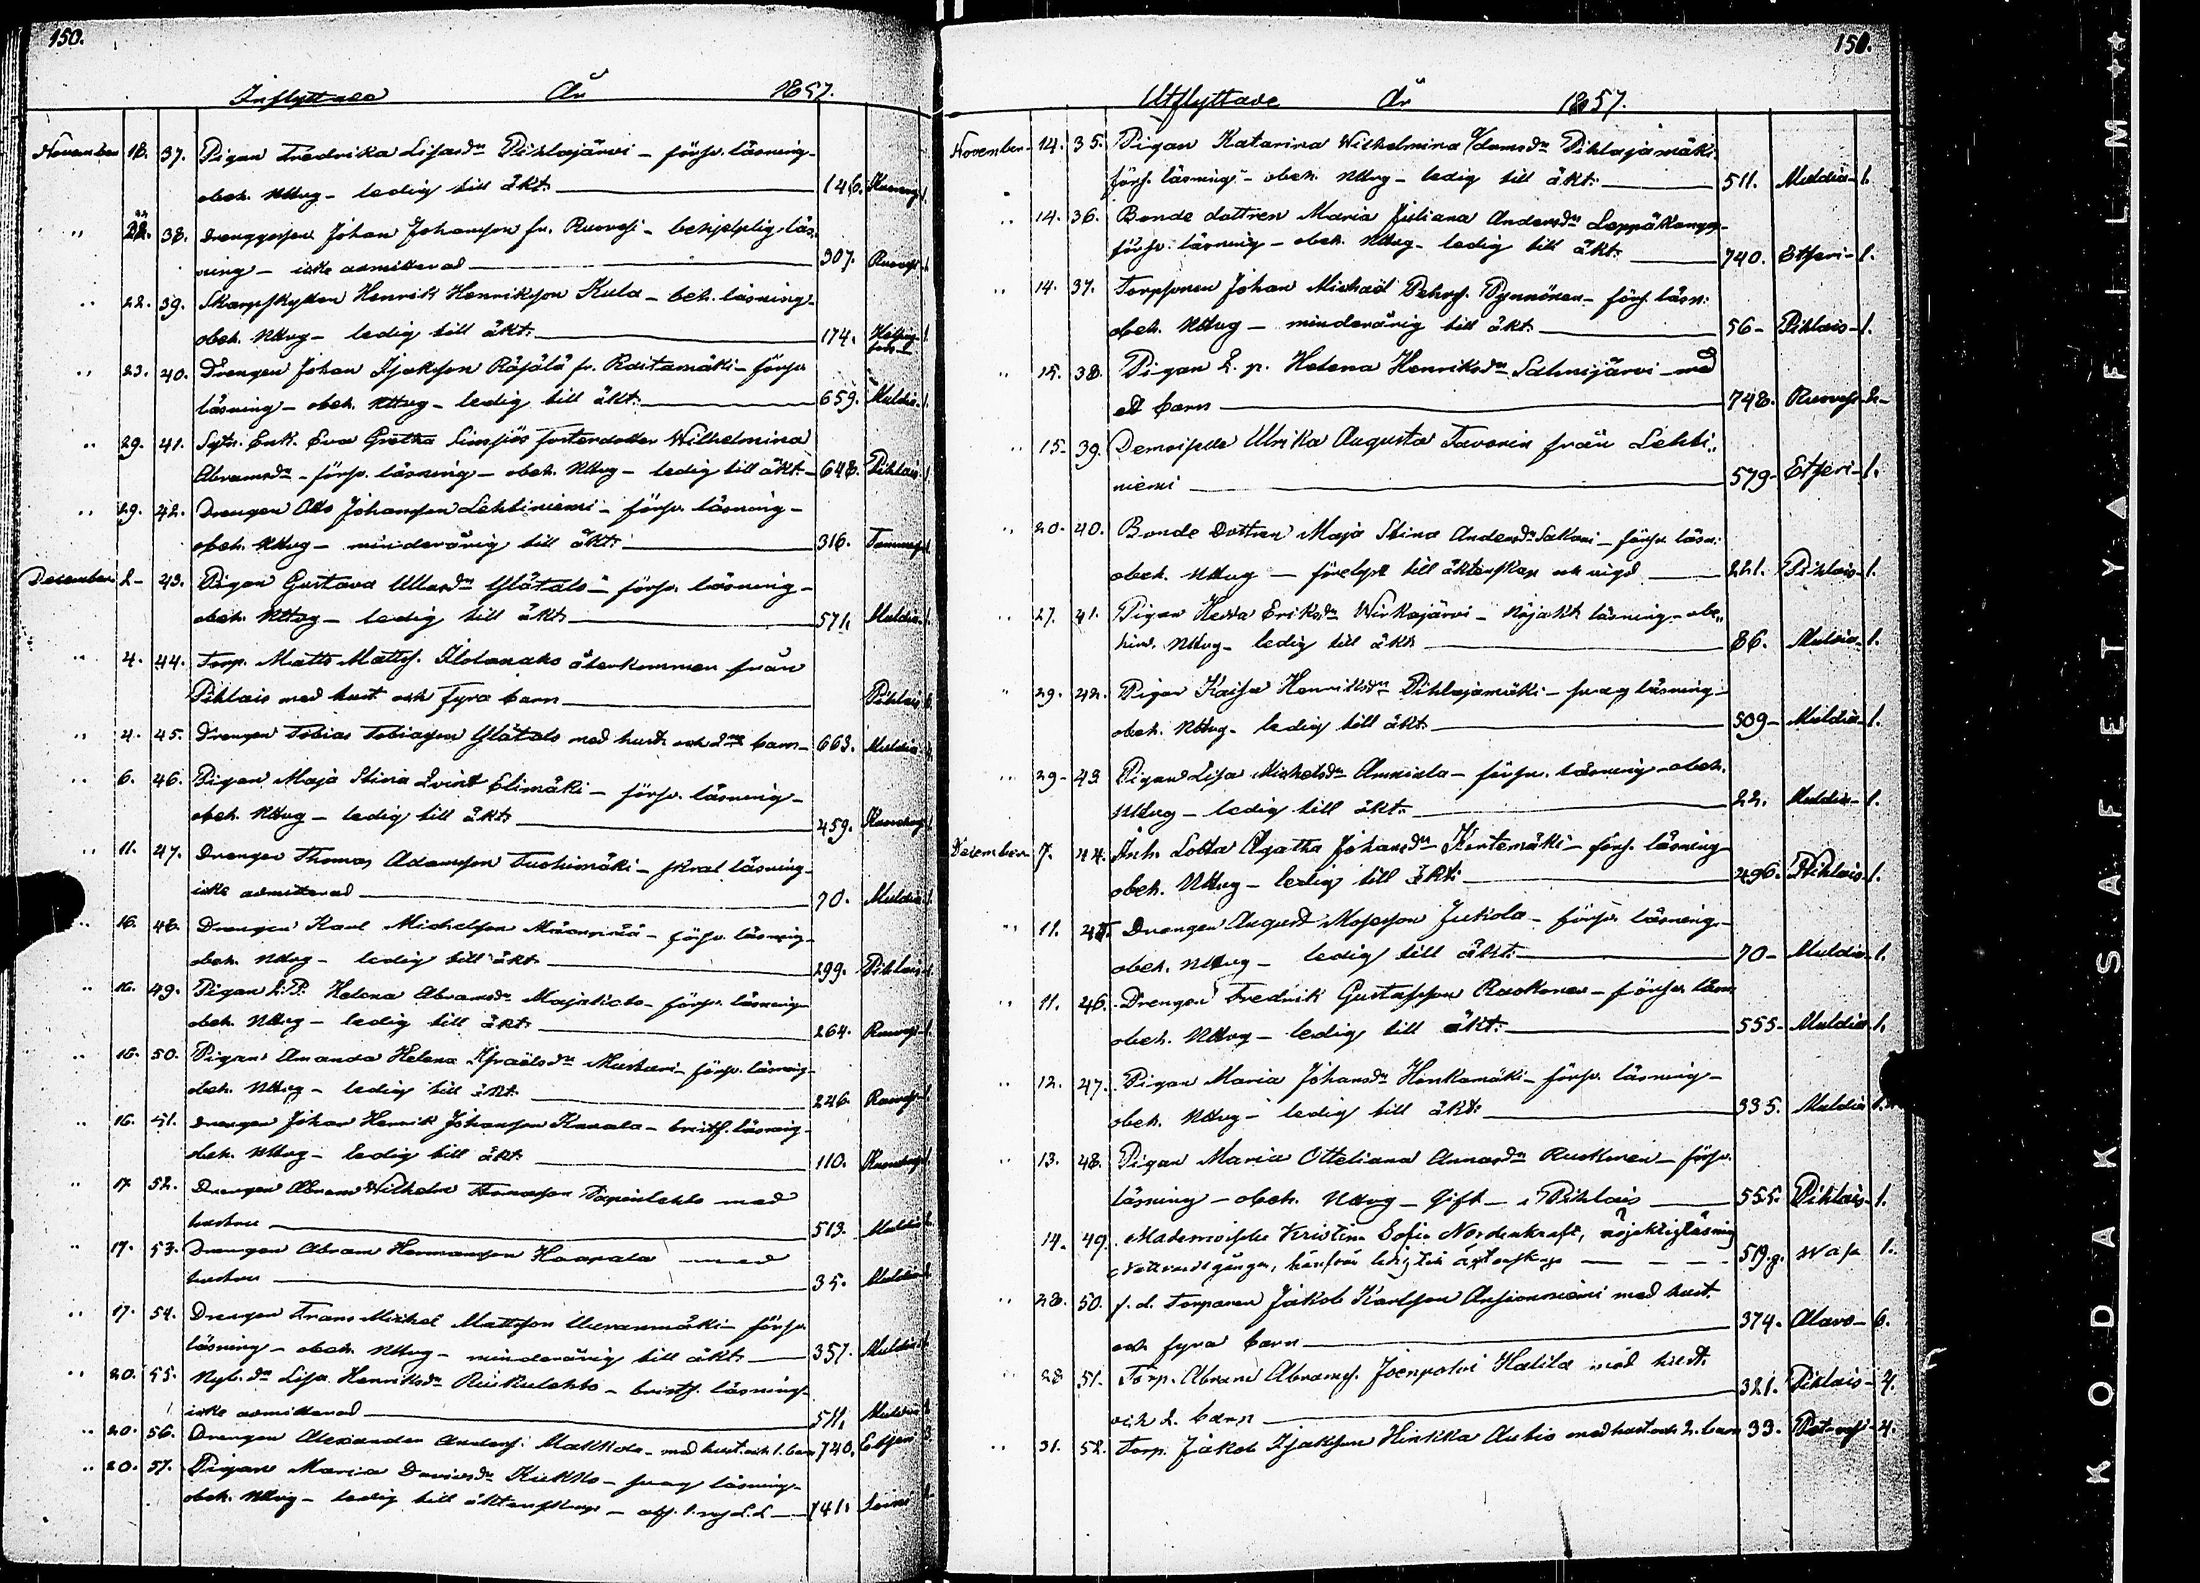 150.
Inflyttade År 1857.
November 18. 37. Pigan Fredrika Lisasdr Pihlajärvi - försv. läsning -
obeh. Nttvg - ledig till äkt. 146.
" 22. 38. Drenggossen Johan Johansson fr. Ruovesi - behjelplig läs-
ning - icke admitterad 307. Ruovesi
" 22. 39. Skarpskytten Henrik Henriksson Kula - beh. läsning -
obeh. Nttvg - ledig till äkt. 174.
" 23. 40. Drengen Johan Isaksson Räjälä fr. Raitamäki - försv.
läsning - obeh. Nttvg - ledig till äkt. 659. Multia 1.
" 29. 41. Enk. Eva Gretha fosterdotter Wilhelmina
Abramsdr - försv. läsning - obeh. Nttvg - ledig till äkt. - 648. Pihlais
" 29. 42. Drengen Otto Johansson Lehtiniemi - försv. läsning -
obeh. Nttvg - minderårig till äkt. 316.
December 2 - 43. Pigan Gustava Ullasdr Ylätalo - försv. läsning -
obeh. Nttvg - ledig till äkt. 571. Multia
" 4. 44. Torp. Matts Mattss. återkommen från
Pihlais med hust. och fyra barn Pihlais
" 4. 45. Drengen Tobias Tobiasson Ylätalo med hust. och barn - 663. Multia
" 6. 46. Pigan Maja Stina Qvist Elimäki - försv. läsning -
obeh. Nttvg - ledig till äkt. 459.
" 11. 47. Drengen Thomas Adamsson Tuohimäki - skral läsning -
icke admitterad 70. Multia
" 16. 48. Drengen Karl Michelsson - försv. läsning -
obeh. Nttvg - ledig till äkt. 299. Pihlais
" 16. 49. Pigan L. P. Helena Abramsdr - försv. läsning -
obeh. Nttvg - ledig till äkt. 264. Ruovesi
" 16. 50. Pigan Amanda Helena Israelsdr - försv. läsning -
obeh. Nttvg - ledig till äkt. 246. Ruovesi
" 16. 51. Drengen Johan Henrik Johansson - bristf. läsning -
obeh. Nttvg - ledig till äkt. 110.
" 17. 52. Drengen Abram Wilhelm med
hustru 513. Multia
" 17. 53. Drengen Abram Hermansson Haapala med
hustru 35. Multia
" 17. 54. Drengen Frans Michel Mattsson - försv.
läsning - obeh. Nttvg - minderårig till äkt. 357. Multia
" 20. 55. Lisa Henriksdr - bristf. läsning -
icke admitterad 511. Multia
" 20. 56. Drengen Alexander Anderss. Makkola - med hust. och 1. barn 740. Etseri 3
" 20. 57. Pigan Maria Davidsdr Kukko - svag läsning -
obeh. Nttvg - ledig till äktenskap - 141.
151.
Utflyttade År 1857.
November - 14. 35. Pigan Katarina Wilhelmina Adamsdr Pihlajamäki
försv. läsning - obeh. Nttvg - ledig till äkt. 511. Multia - 1.
" 14. 36. Bonde dottren Maria Juliana Andersdr Leppäkangas -
försv. läsning - obeh. Nttvg - ledig till äkt. 740. Etseri - 1.
" 14. 37. Torpsonen Johan Michaël Pehrss. Pynnönen - försv. läsn:
obeh. Nttvg - minderårig till äkt. 56 - Pihlais - 1.
" 15. 38. Pigan L. p. Helena Henriksdr Salmijärvi - med
ett barn 748. Ruovesi - 2 -
" 15 - 39. Demoiselle Ulrika Augusta från Lehti„
niemi 579 - Etseri - 1.
" 20 - 40. Bonde Dottren Maja Stina Andersdr Sakari - försv. läsn:
obeh. Nttvg - förelyst till äktenskap och vigd 221. Pihlais - 1.
" 27. 41. Pigan Hedda Eriksdr Wirkajärvi - nöjakt läsning - obe„
hind. Nttvg - ledig till äkt. 86. Multia - 1.
" 29. 42. Pigan Kaisa Henriksdr Pihlajamäki - svag läsning -
obeh. Nttvg - ledig till äkt. 509 - Multia - 1.
" 29 - 43. Pigan Lisa Michelsdr Ammiala - försv. läsning - obeh.
Nttvg - ledig till äkt. 22. Multia - 1.
December - 7. 44. Inh. Lotta Agatha Johansdr Kortemäki - försv. läsning -
obeh. Nttvg - ledig till äkt. 496. Pihlais - 1.
" 11. 45. Drengen August Mosesson Jukola - försv. läsning -
obeh. Nttvg - ledig till äkt. 70 - Multia - 1.
" 11. 46. Drengen Fredrik Gustafsson Ruokonen - försv. läsn
obeh. Nttvg - ledig till äkt. 555 - Multia - 1.
" 12. 47. Pigan Maria Johansdr Honkamäki - försv. läsning -
obeh. Nttvg - ledig till äkt. 335. Multia 1.
" 13. 48. Pigan Maria Otteliana Annasdr Ruokonen - försv.
läsning - obeh. Nttvg - Gift - i Pihlais 555. Pihlais - 1.
14. 49. Mademoiselle Kristina Sofia Nordenkraft, nöjaktig läsning
nattvardsgången, härifrån ledig till äktenskap 519. Wasa 1.
" 28. 50. f. d. Torparen Jakob Karlsson med hust.
och fyra barn 374. Alavo - 6.
" 28 51. Torp. Abram Abramss. Joenpolvi Halila med hust.
och 2. barn 321. Pihlais - 4.
" 31. 52. Torp. Jakob Isaksson Hinkka Autio med hust. och 2. barn 33. - 4.
KODAK SAFETY FILM